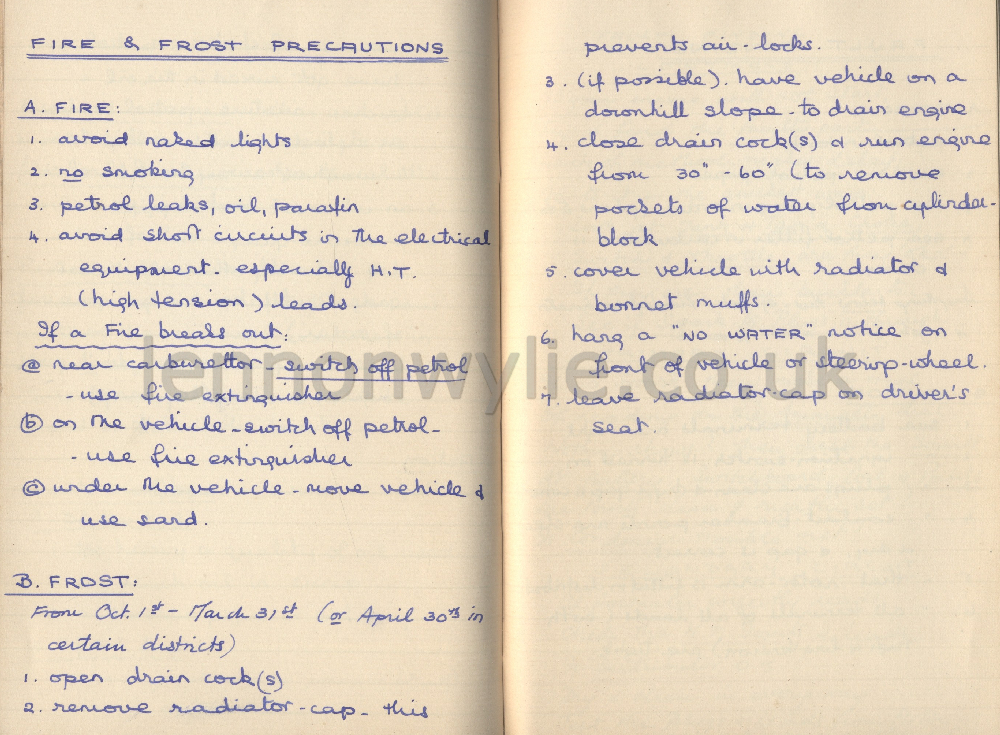 FIRE & FROST PRECAUTIONS
A. FIRE:
1. avoid naked lights
2. no smoking
3. petrol leaks, oil, parafin
4. avoid short circuits in the electrical
equipment. especially H.T.
(high tension) leads.
If a Fire breaks out:
(a) near carburettor - switch off petrol
- use fire extinguisher
(b) on the vehicle - switch off petrol -
- use fire extinguisher
(c) under the vehicle - move vehicle &
use sand.
B. FROST:
From Oct. 1st - March 31st (or April 30th in
certain districts)
1. open drain cock(s)
2. remove radiator-cap - this
prevents air-locks.
3. (if possible). have vehicle on a
downhill slope - to drain engine
4. close drain cock(s) & run engine
from 30" - 60" (to remove
pockets of water from cylinder-
block
5. cover vehicle with radiator &
bonnet muffs.
6. hang a "NO WATER" notice on
front of vehicle or steering-wheel.
7. leave radiator-cap on driver's
seat.
lennonwylie.co.uk